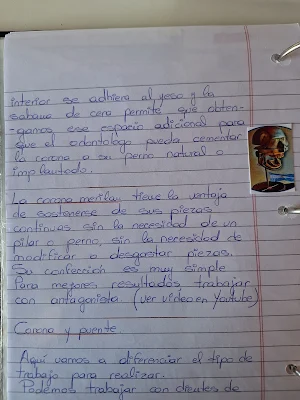 interior se adhiera al yeso y la
sabana de cera permite que obten-
-gamos ese espacio adicional para
que el odontologo pueda cementar
la corona a su perno natural o
implantado.
La corona merilan tiene la ventaja
de sostenerse de sus piezas
continuas sin la necesidad de un
pilar o perno, sin la necesidad de
modificar o desgastar piezas.
Su confección es muy simple
Para mejores resultados trabajar
con antagonista (ver video en Youtube)
Corona y puente.
Aquí vamos a diferenciar el tipo de
trabajo para realizar.
Podemos trabajar con dientes de